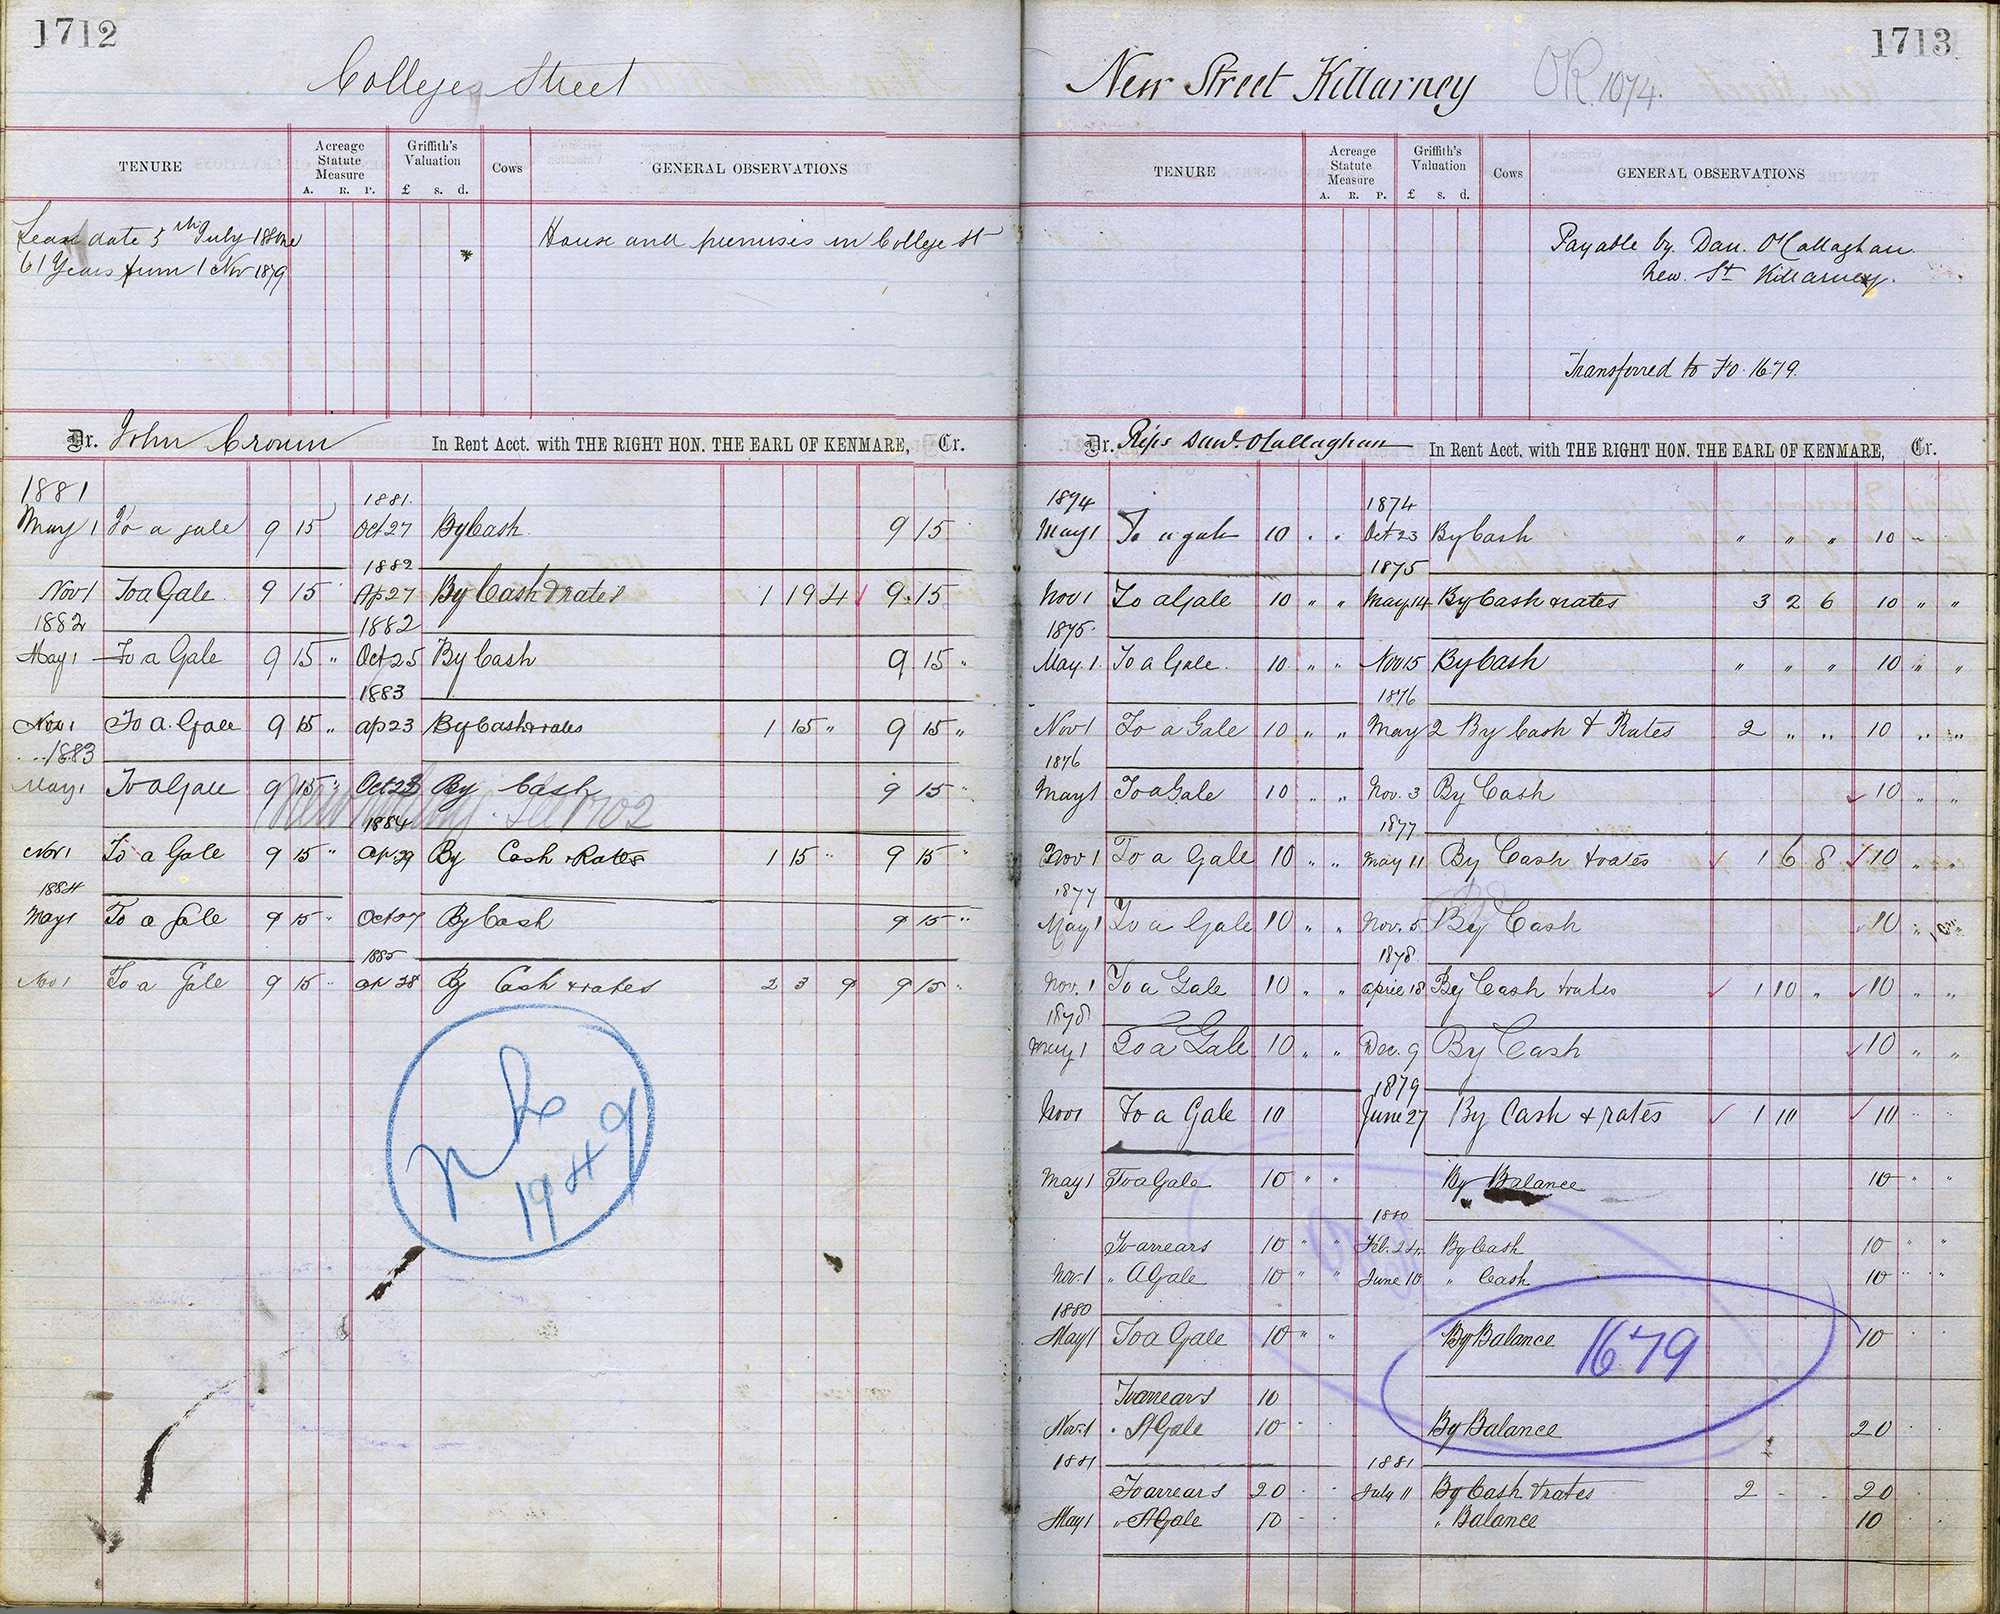 1712
College Street
TENURE
Acreage Statute Measure
A. R. P.
Griffith's Valuation
£ s. d.
Cows
GENERAL OBSERVATIONS
Lease date 5th July 1880
61 Years from 1 Nov 1879
House and premises in College St
Dr. John Cronin In Rent Acct. with THE RIGHT HON. THE EARL OF KENMARE, Cr.
1881 1881.
May 1 To a gale 9 15 Oct 27 By Cash. 9 15
1882
Nov 1 To a Gale 9 15 Ap 27 By Cash & rates 1 19 4 9 15
1882 1882
May 1 To a Gale 9 15 " Oct 25 By Cash 9 15 "
1883
Nov 1 To a Gale 9 15 " Ap 23 By Cash & rates 1 15 " 9 15 "
1883
May 1 To a Gale 9 15 " Oct 23 By Cash 9 15 "
1702
1884
Nov 1 To a Gale 9 15 " Ap 29 By Cash & Rates 1 15 " 9 15 "
1884
May 1 To a Gale 9 15 " Oct 27 By Cash 9 15 "
1885
Nov 1 To a Gale 9 15 " Ap 28 By Cash & rates 2 3 9 9 15 "
1949
1713
New Street Killarney OR. 1074.
TENURE
Acreage Statute Measure
A. R. P.
Griffith's Valuation
£ s. d.
Cows
GENERAL OBSERVATIONS
Payable by Dan. O'Callaghan.
New. St Killarney.
Transferred to Fo. 1679.
Dr. Reps Danl. O'Callaghan In Rent Acct. with THE RIGHT HON. THE EARL OF KENMARE, Cr.
1874 1874
May 1 To a gale 10 " " Oct 23 By Cash " " " 10 "
1875
Nov 1 To a Gale 10 " " May 14 By Cash & rates 3 2 6 10 " "
1875
May 1 To a Gale 10 " " Nov 15 By Cash " " " 10 " "
1876
Nov 1 To a Gale 10 " " May 2 By Cash & Rates 2 " " 10 " "
1876
May 1 To a Gale 10 " " Nov. 3 By Cash 10 " "
1877
Nov 1 To a Gale 10 " " May 11 By Cash & rates 1 6 8 10 " "
1877
May 1 To a Gale 10 " " Nov. 5 By Cash 10 " "
1878
Nov. 1 To a Gale 10 " " April 18 By Cash & rates 1 10 " 10 " "
1878
May 1 To a Gale 10 " " Dec. 9 By Cash 10 " "
1879
Nov 1 To a Gale 10 June 27 By Cash & rates 1 10 10 " "
May 1 To a Gale 10 " " By Balance 10 " "
1880
To arrears 10 " " Feb. 24 By Cash 10 " "
Nov. 1 " A Gale 10 " " June 10 " Cash 10 " "
1880
May 1 To a Gale 10 " " By Balance 10
1679
To arrears 10
Nov. 1 " A Gale 10 By Balance 20
1881 1881
To arrears 20 July 11 By Cash & rates 2 - - 20
May 1 " A Gale 10 " Balance 10